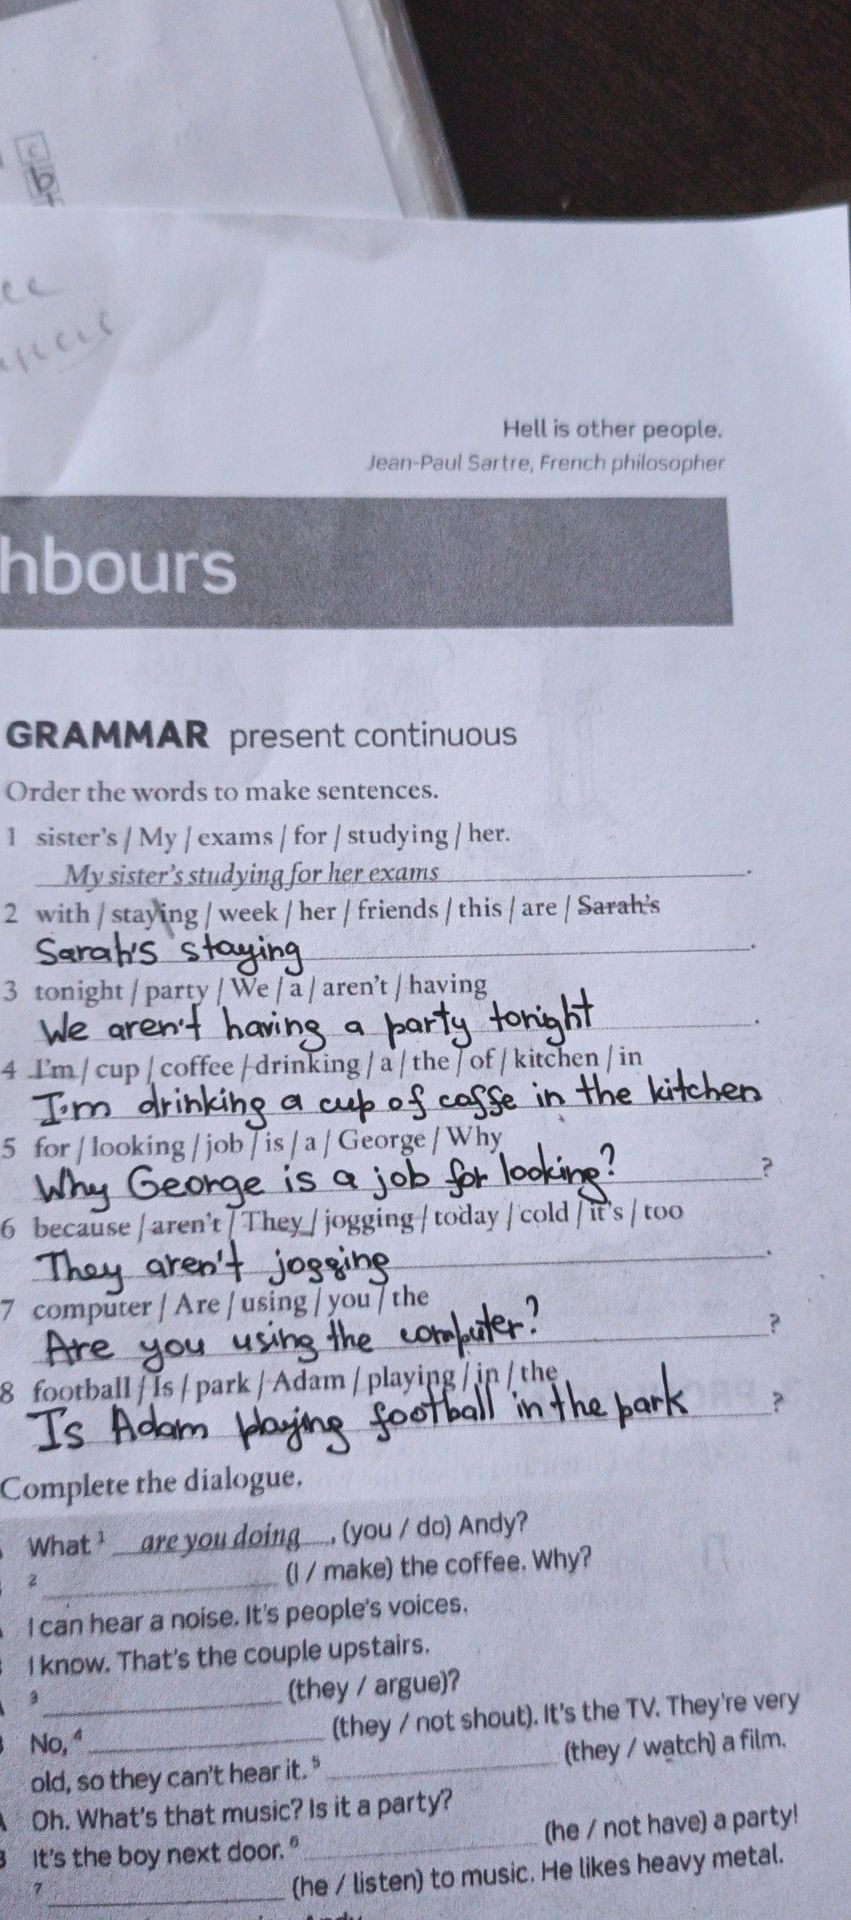 c
b
Hell is other people.
Jean-Paul Sartre, French philosopher
hbours
GRAMMAR present continuous
Order the words to make sentences.
1 sister's / My / exams / for / studying / her.
My sister's studying for her exams.
2 with / staying / week / her / friends / this / are / Sarah's
Sarah's staying .
3 tonight / party / We / a / aren't / having
We aren't having a party tonight .
4 I'm / cup / coffee / drinking / a / the / of / kitchen / in
I'm drinking a cup of coffe in the kitchen
5 for / looking / job / is / a / George / Why
Why George is a job for looking? ?
6 because / aren't / They / jogging / today / cold / it's / too
They aren't jogging .
7 computer / Are / using / you / the
Are you using the computer? ?
8 football / Is / park / Adam / playing / in / the
Is Adam playing football in the park ?
Complete the dialogue.
What ¹ are you doing , (you / do) Andy?
² (I / make) the coffee. Why?
I can hear a noise. It's people's voices.
I know. That's the couple upstairs.
³ (they / argue)?
No, ⁴ (they / not shout). It's the TV. They're very
old, so they can't hear it. ⁵ (they / watch) a film.
Oh. What's that music? Is it a party?
It's the boy next door. ⁶ (he / not have) a party!
⁷ (he / listen) to music. He likes heavy metal.